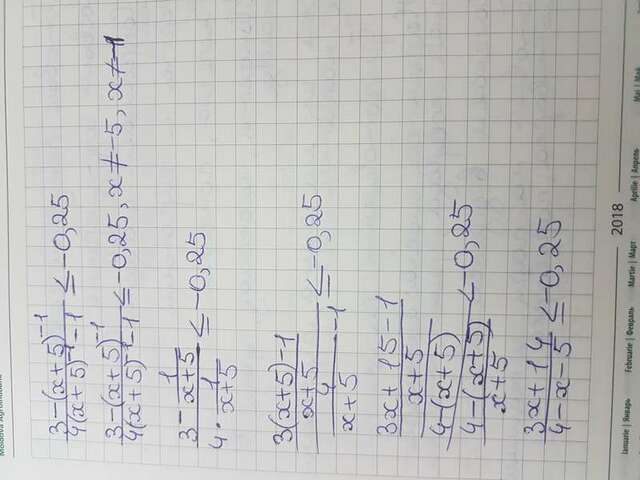 Moldova Agroindbank
3-(x+5)^-1 / 4(x+5)^-1-1 ≤ -0,25
3-(x+5)^-1 / 4(x+5)^-1-1 ≤ -0,25, x≠-5, x≠-1
3 - 1/(x+5) / 4 · 1/(x+5) ≤ -0,25
3(x+5)-1 / x+5 / 4/(x+5) - 1 ≤ -0,25
3x+15-1 / x+5 / 4-(x+5) / 4-(x+5) / x+5 ≤ -0,25
3x+14 / 4-x-5 ≤ -0,25
2018
Ianuarie | Январь Februarie | Февраль Martie | Март Aprilie | Апрель Mai | Май